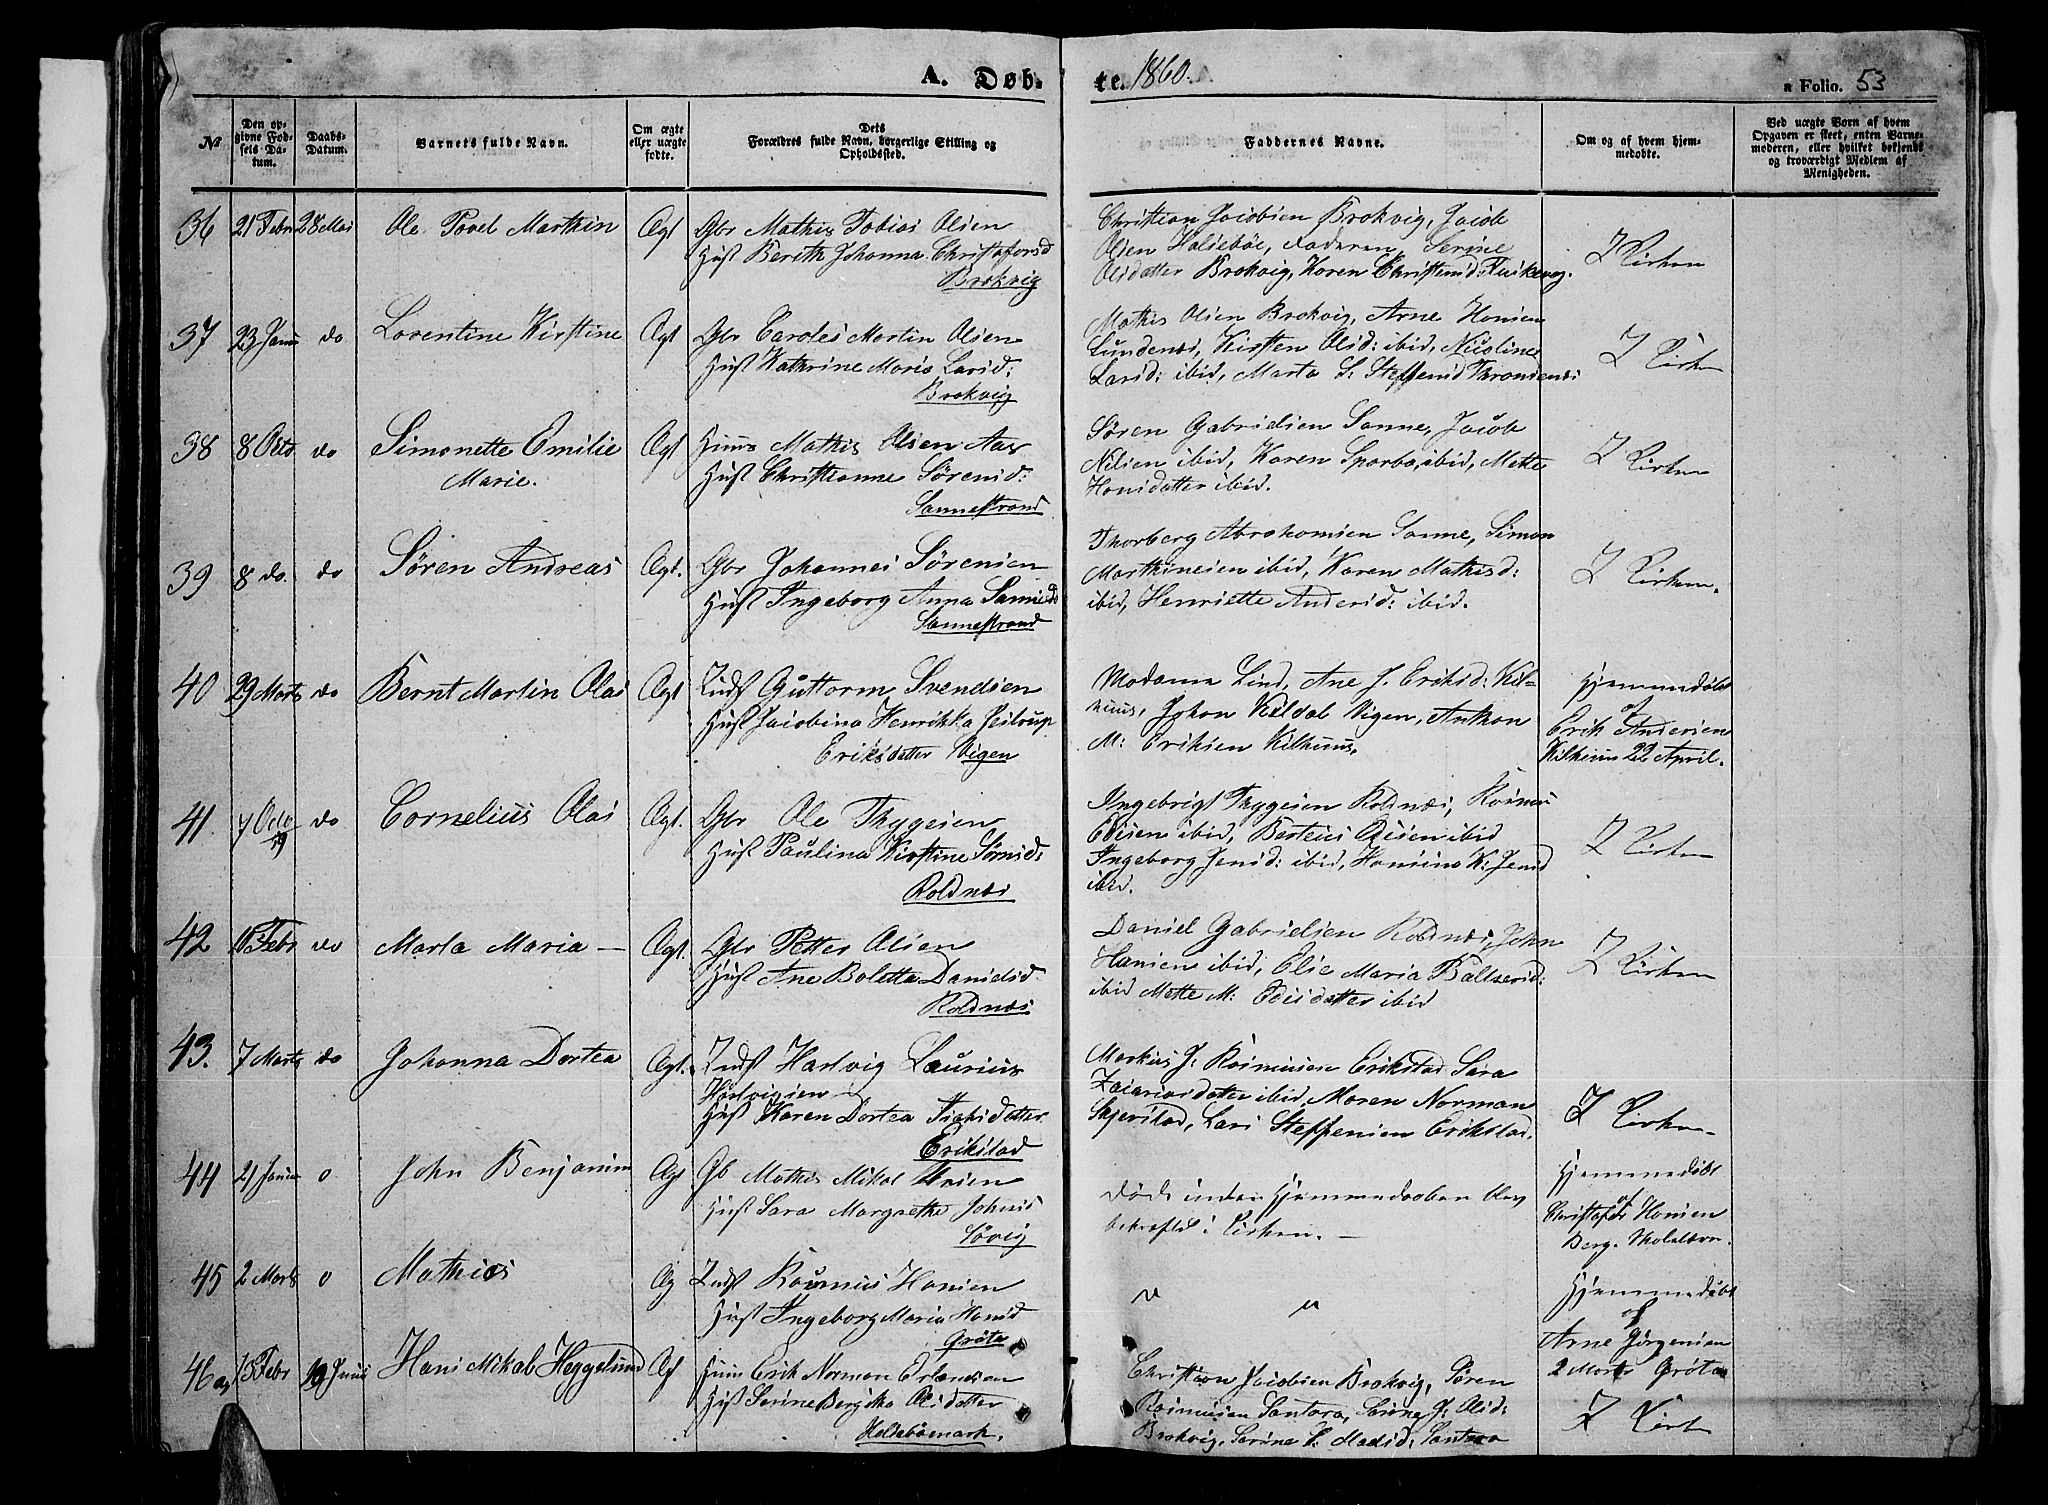 A. Døb-
te. 1860.
a Folio. 53
№
Den op-
givne Fød-
sels Da-
tum.
Daabs-
Datum.
Barnets fulde Navn.
Om ægte
eller uægte
fødte.
Dets
Forældres fulde Navn, borgerlige Stilling og
Opholdssted.
Faddernes Navne.
Om og af hvem hjem-
medøbte.
Ved uægte Børn af hvem
Opgaven er skeet, enten Barne-
moderen, eller hvilket bekjendt
og troværdigt Medlem af
Menigheden.
36 21 Febr 28 Mai Ole Povel Marthin Ægt Gbr Mathis Tobias Olsen
Hust Bereth Johanna Christofersd
Brokvig
Christian Jacobsen Brokvig, Jacob
Olsen Faderen Serine
Olsdatter Brokvig, Karen
I Kirken
37 23 Janu do Lorentine Kirstine Ægt Gbr Carolus Martin Olsen
Hust Kathrine Maria Larsd:
Brokvig
Mathis Olsen Brokvig, Arne Hansen
Lundenæs, Kirsten Olsd: ibid, Nicoline
Larsd: ibid, Marta S: Steffensd
I Kirken
38 8 Octo do Simonette Emilie
Marie.
Ægt Huus Mathis Olsen Aas
Hust Christianne Sørensd:
Sannestrand
Søren Gabrielsen Sanne, Jacob
Nilsen ibid, Karen Sparbo ibid, Mette
Hansdatter ibid.
I Kirken
39 8 do. do Søren Andreas Ægt. Gbr Johannes Sørensen
Hust Ingeborg Anna
Sannestrand
Thorberg Abrahamsen Sanne, Simon
Marthinesen ibid, Karen Mathisd:
ibid, Henriette Andersd: ibid.
I Kirken.
40 29 Marts do Bernt Martin Olai Ægt Indst Guttorm Svendsen
Hust Jacobina Henrikka
Eriksdatter Vigen
Madame Lind, Ane J. Eriksd: Kil-
huus, Johan Kildal Vigen, Anthon
M: Eriksen Kilhuus.
Hjemmedøbt
af
Erik Andersen
Kilhuus 22 April.
41. 7 Octo
59 do Cornelius Olai Ægt. Gbr Ole Thygesen
Hust Paulina Kirstine Sørnsd:
Roldnæs
Ingebrigt Thygesen Roldnæs, Rasmus
Edisen ibid, Berteus Edisen ibid
Ingeborg Jensd: ibid, Hansina K: Jensd
ibid.
I Kirken
42 Febr do Marta Maria — Ægt. Gbr Petter Olsen
Hust Ane Boletta Danielsd.
Roldnæs
Daniel Gabrielsen Roldnæs, John
Hansen ibid, Elie Maria Baltsersd:
ibid Mette M: Edisdatter ibid
I Kirken
43. 7 Marts do Johanna Dortea Ægt. Indst Hartvig Laurius
Hartvigsen
Hust Karen Dortea Isaksdatter
Erikstad
Markus J: Rasmusen Erikstad Sara
Zacariasdatter ibid, Maren Norman
Skjerstad, Lars Steffensen Erikstad.
I Kirken
44 21 Janua 0 John Benjamin Æg Gb Mathis Mikal
Hust Sara Margrethe Johnsd
Løvig
døde inden Hjemmedaaben blev
bekræftet i Kirken. —
Hjemmedøbt
af
Christofer Hansen
Berg. Skolelærer
45 2 Marts 0 Mathias Æg Indst Rasmus Hansen
Hust Ingeborg Maria Hansd
Grøta
Hjemmedøbt
af
Arne Jørgensen
2 Marts Grøta
46 a, 15 Febr 10 Juni Hans Mikal Heggelund Æg Huus Erik Norman Erlandsen
Hust Serine Bergitha Olsdatter
Holdebømark.
Christian Jacobsen Brokvig, Søren
Rasmusen Santora, Serine J: Olsd:
Brokvig, Serina Madsd: Santora
I Kirk